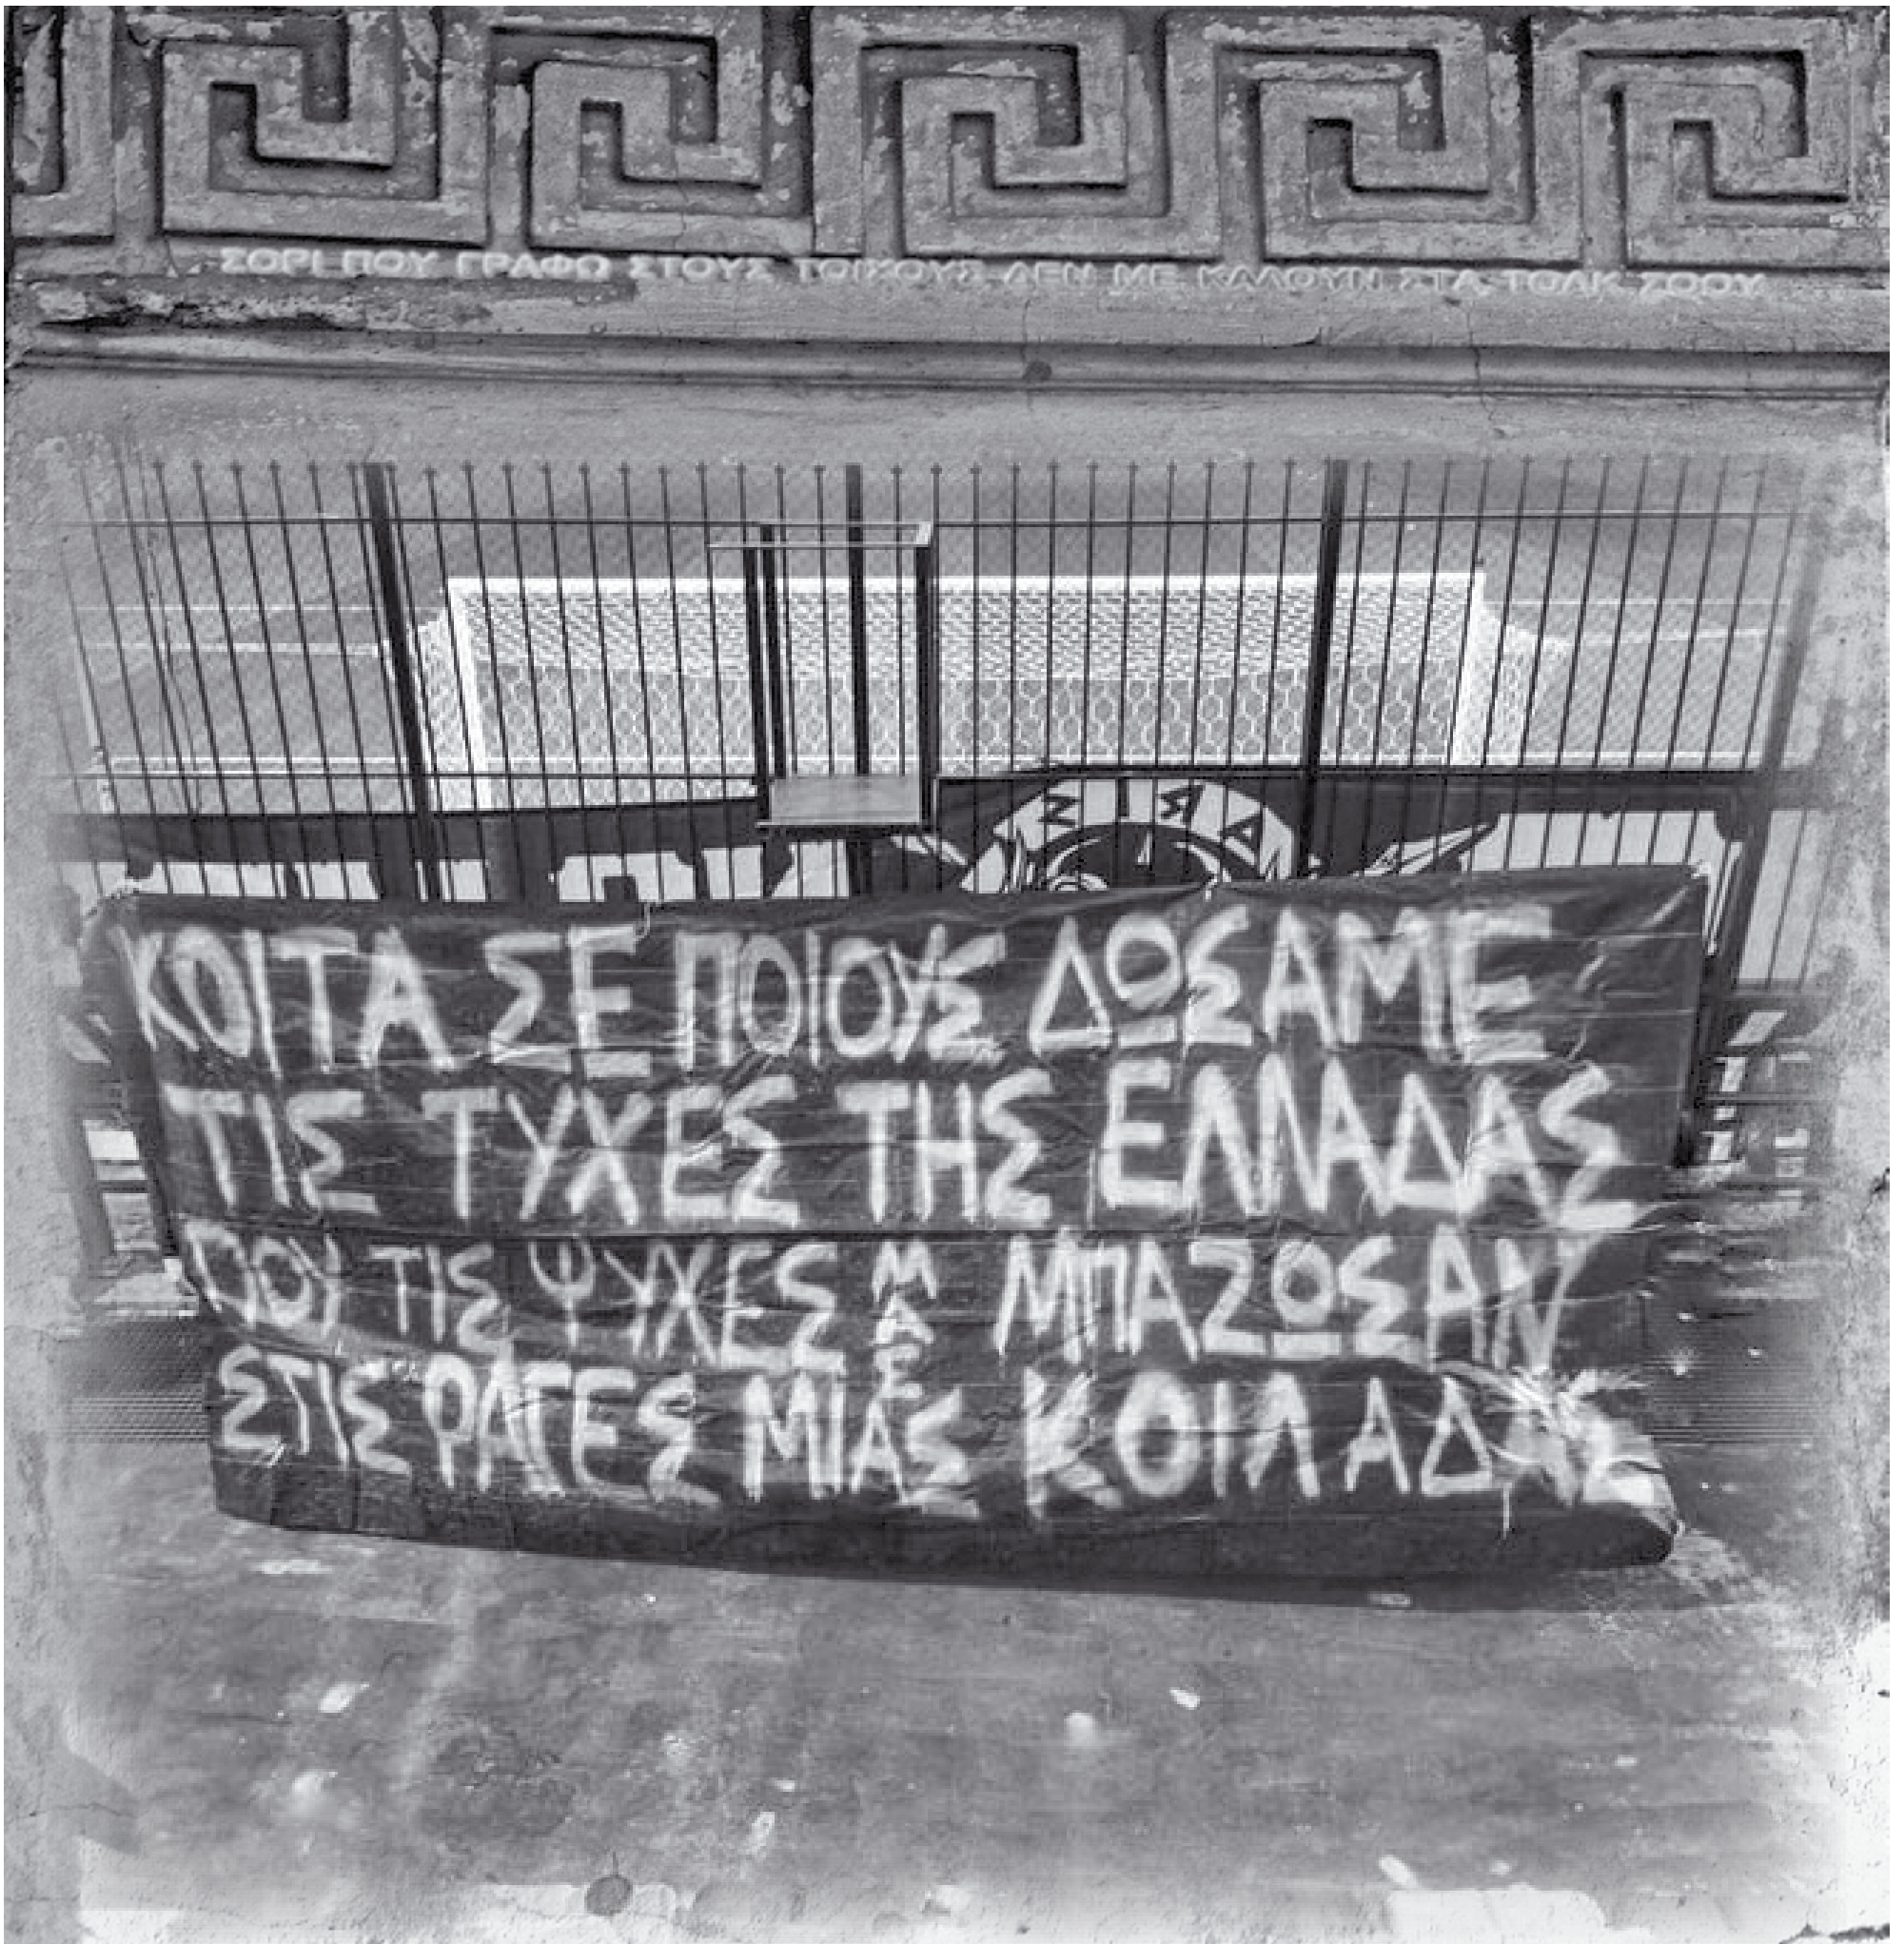 ΣΟΡΙ ΠΟΥ ΓΡΑΦΩ ΣΤΟΥΣ ΤΟΙΧΟΥΣ ΔΕΝ ΜΕ ΚΑΛΟΥΝ ΣΤΑ ΤΟΛΚ ΣΟΟΥ
ΚΟΙΤΑ ΣΕ ΠΟΙΟΥΣ ΔΩΣΑΜΕ
ΤΙΣ ΤΥΧΕΣ ΤΗΣ ΕΛΛΑΔΑΣ
ΠΟΥ ΤΙΣ ΨΥΧΕΣ ΜΑΣ ΜΠΑΖΩΣΑΝ
ΣΤΙΣ ΡΑΓΕΣ ΜΙΑΣ ΚΟΙΛΑΔΑΣ